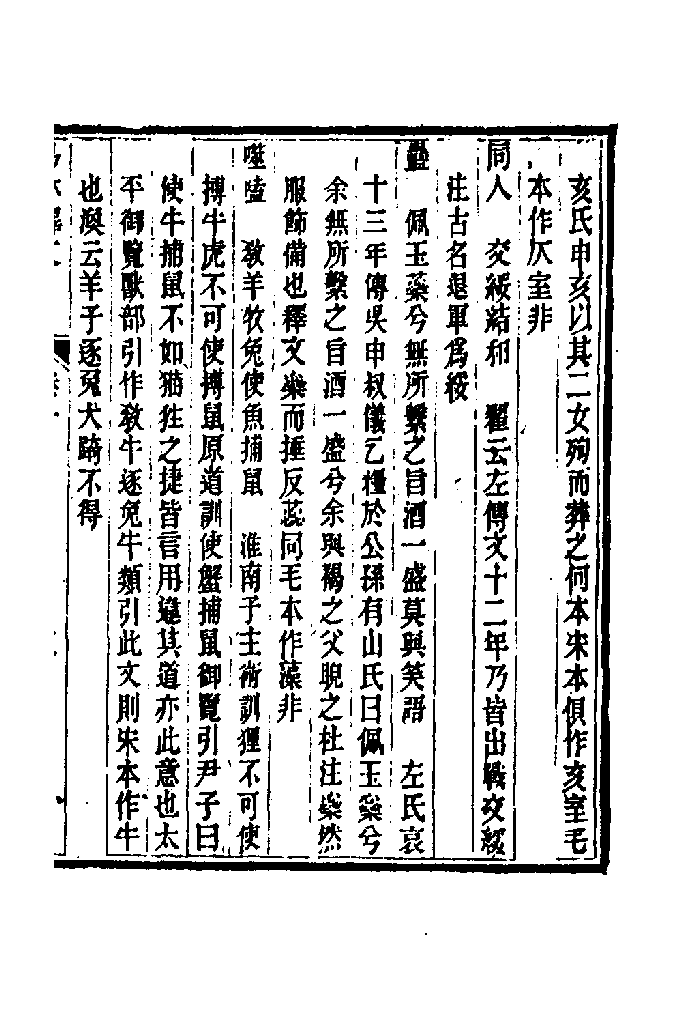 亥氏申亥以其二女殉而葬之何本宋本俱作亥室毛
本作仄室非
同人　交綏結和　翟云左傳文十二年乃皆出戰交綏
注古名退軍爲綏
蠱　佩玉蘂兮無所繫之旨酒一盛莫與笑語　左氏哀
十三年傳吳申叔儀乞糧於公孫有山氏曰佩玉蘂兮
余無所繫之旨酒一盛兮余與褐之父睨之杜注蘂然
服飾備也釋文橤而捶反蕊同毛本作藻非
噬嗑　敎羊牧兔使魚捕鼠　淮南子主術訓狸不可使
搏牛虎不可使搏鼠原道訓使蟹捕鼠御覽引尹子曰
使牛捕鼠不如猫狌之捷皆言用違其道亦此意也太
平御覽獸部引作敎牛逐兔牛類引此文則宋本作牛
也渙云羊子逐兔犬踦不得